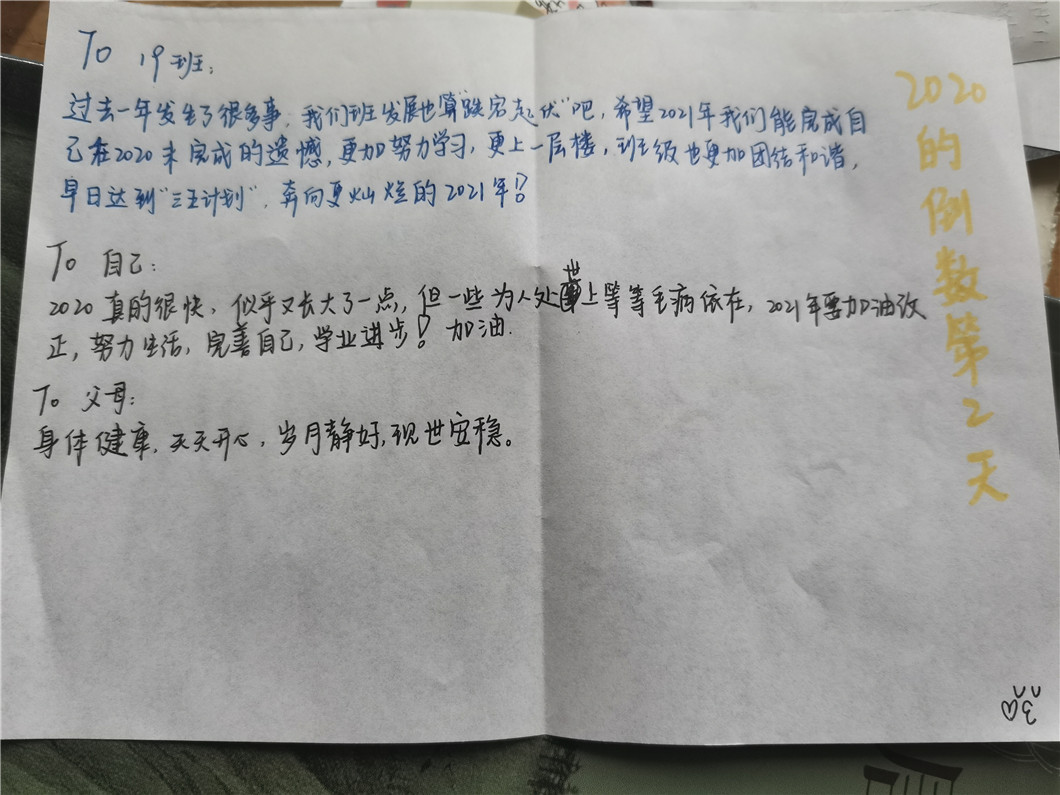 To 19班：
过去一年发生了很多事，我们班发展也算"跌宕起伏"吧，希望2021年我们能完成自
己在2020未完成的遗憾，更加努力学习，更上一层楼，班级也更加团结和谐，
早日达到"三王计划"，奔向更灿烂的2021年！
To 自己：
2020真的很快，似乎又长大了一点，但一些为人处世上等等毛病依在，2021年要加油改
正，努力生活，完善自己，学业进步！加油.
To 父母：
身体健康，天天开心，岁月静好，现世安稳。
2020的倒数第2天